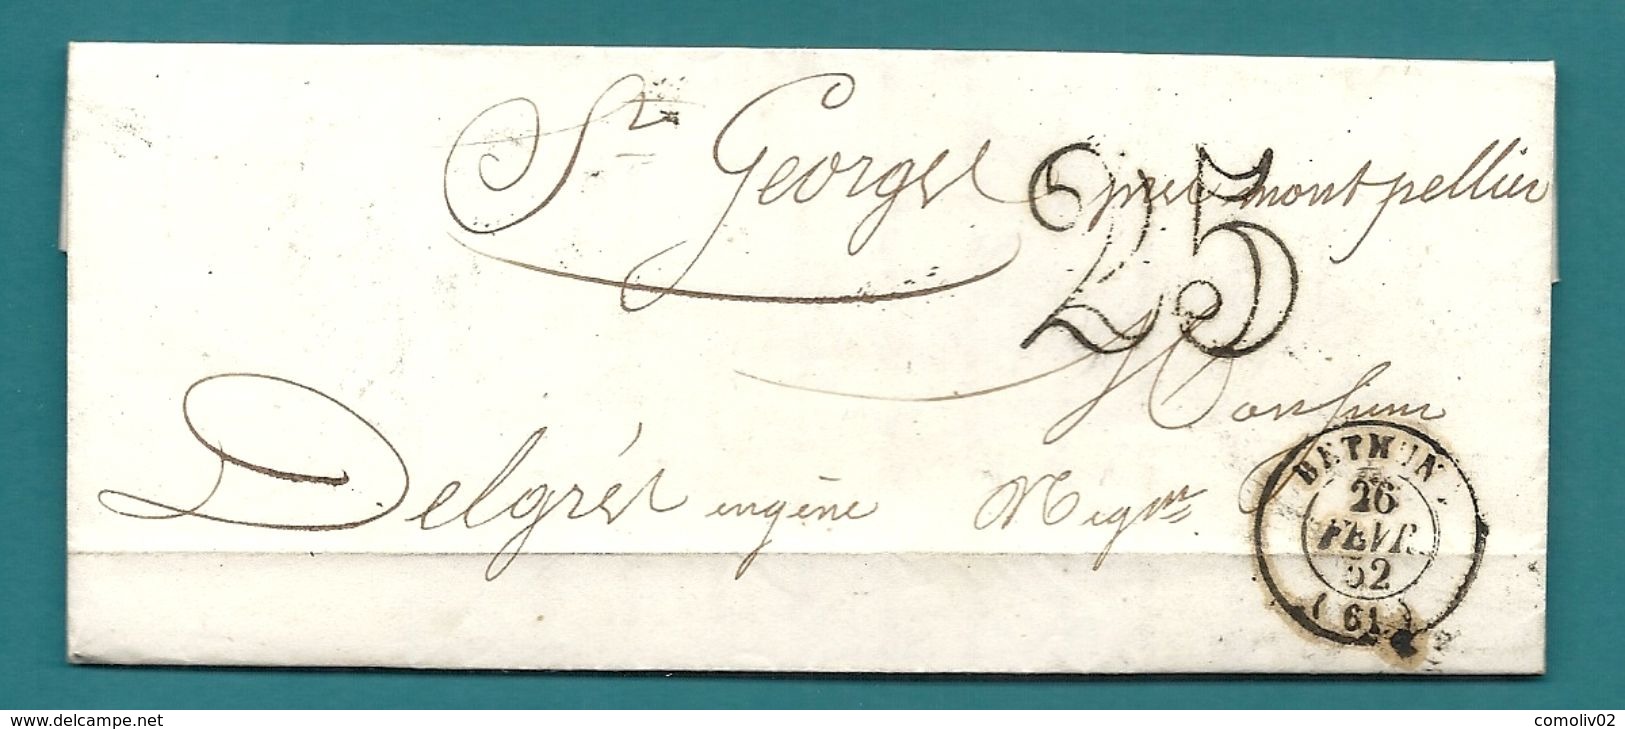 St Georges près montpellier
25
Monsieur
Delgrés eugène Neg^nt
BETHUNE
26
FEVR.
52
(61)
www.delcampe.net
comoliv02